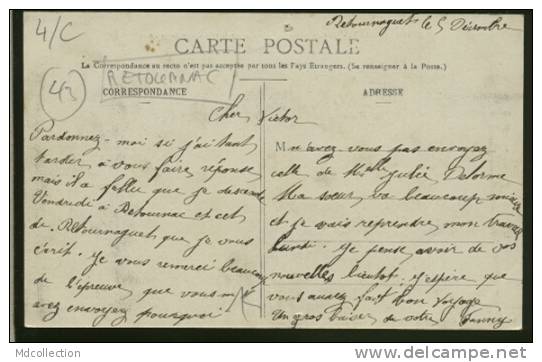 Retournaguet le 5 Décembre
4/C
CARTE POSTALE
La Correspondance au recto n'est pas acceptée par tous les Pays Étrangers. (Se renseigner à la Poste.)
RETOURNAC
43
CORRESPONDANCE
ADRESSE
Cher Victor
Pardonnez-moi si j'ai tant
tarder à vous faire réponse
mais il a fallu que je descende
Vendredi à Retournac et cet
de Retournaguet que je vous
écrit. je vous remerci beaucoup
de l'épreuve que vous m'
avez envoyez pourquoi
M'avez-vous pas envoyez
celle de Melle Julie Delorme
Ma sœur va beaucoup mieux
et je vais reprendre mon travail
lundi. je pense avoir de vos
nouvelles bientot. j'espère que
vous aurez fait bon voyage
Un gros baiser de votre Fanny
Mdcollection
http://www.delcampe.net